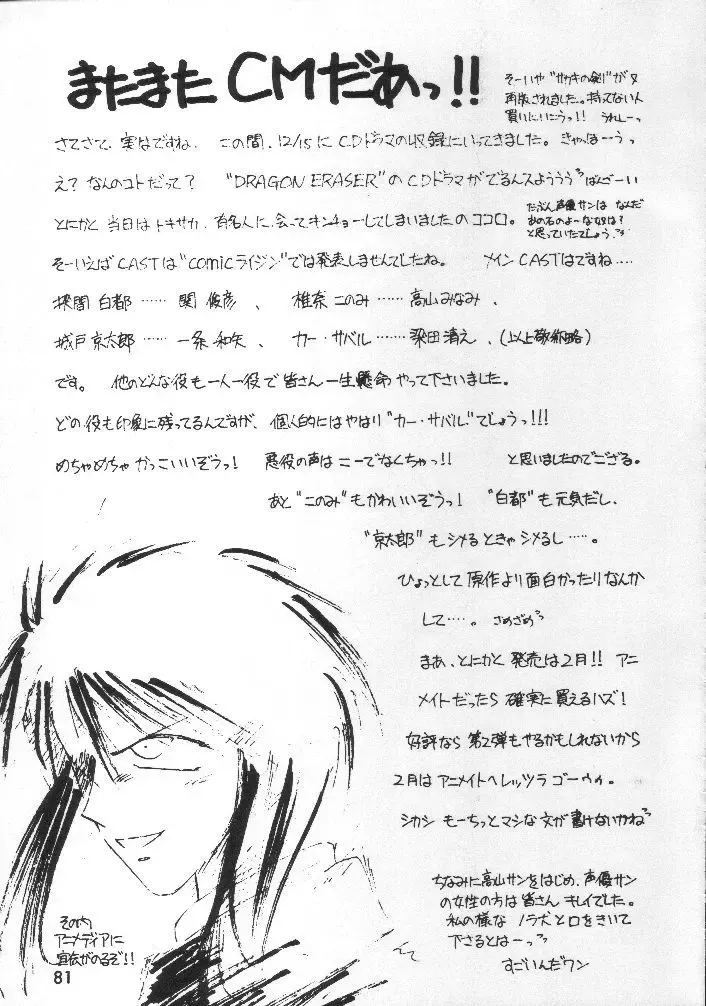 またまた CMだあっ!!
そーいや"サカキの剣"が又
再版されました。持ってない人
買いにいこうっ!! うれしーっ
さてさて、実はですね、 この間、12/15にCDドラマの収録にいってきました。きゃっほーうっ
え?なんのコトだって? "DRAGON ERASER"のCDドラマがでるんスようううっばんざーい
とにかく当日はトキサカ、有名人に会ってキンチョーしてしまいましたのココロ。
たぶん声優サンは なんだ
あの石のよーな女は?
と思っていたでしょう、
そーいえばCASTは"comicライジン"では発表しませんでしたね。 メインCASTはですね‥‥
探間 白都‥‥‥関 俊彦、 椎奈このみ‥‥‥高山みなみ、
城戸京太郎‥‥‥一条和矢、 カー・サバル‥‥‥梁田清之、(以上敬称略)
です。 他のどんな役も一人一役で皆さん一生懸命やって下さいました。
どの役も印象に残ってるんですが、個人的にはやはり"カー・サバル"でしょうっ!!!
めちゃめちゃ かっこいいぞうっ! 悪役の声はこーでなくちゃっ!! と思いましたのでござる。
あと"このみ"もかわいいぞうっ! "白都"も元気だし、
"京太郎"もシメるときゃシメるし‥‥。
ひょっとして原作より面白かったりなんか
して‥‥。さめざめっ
まあ、とにかく発売は2月!! アニ
メイトだったら確実に買えるハズ!
好評なら第2弾もやるかもしれないから
2月はアニメイトへレッツラゴーゥゥ。
シカシ もーちっとマシな文が書けないかねっ
ちなみに高山サンをはじめ、声優サン
の女性の方は皆さんキレイでした。
私の様なノラ犬と口をきいて
下さるとはーっっ
すごいんだワン
その内
アニメディアに
宣伝がのるぞ!!
81